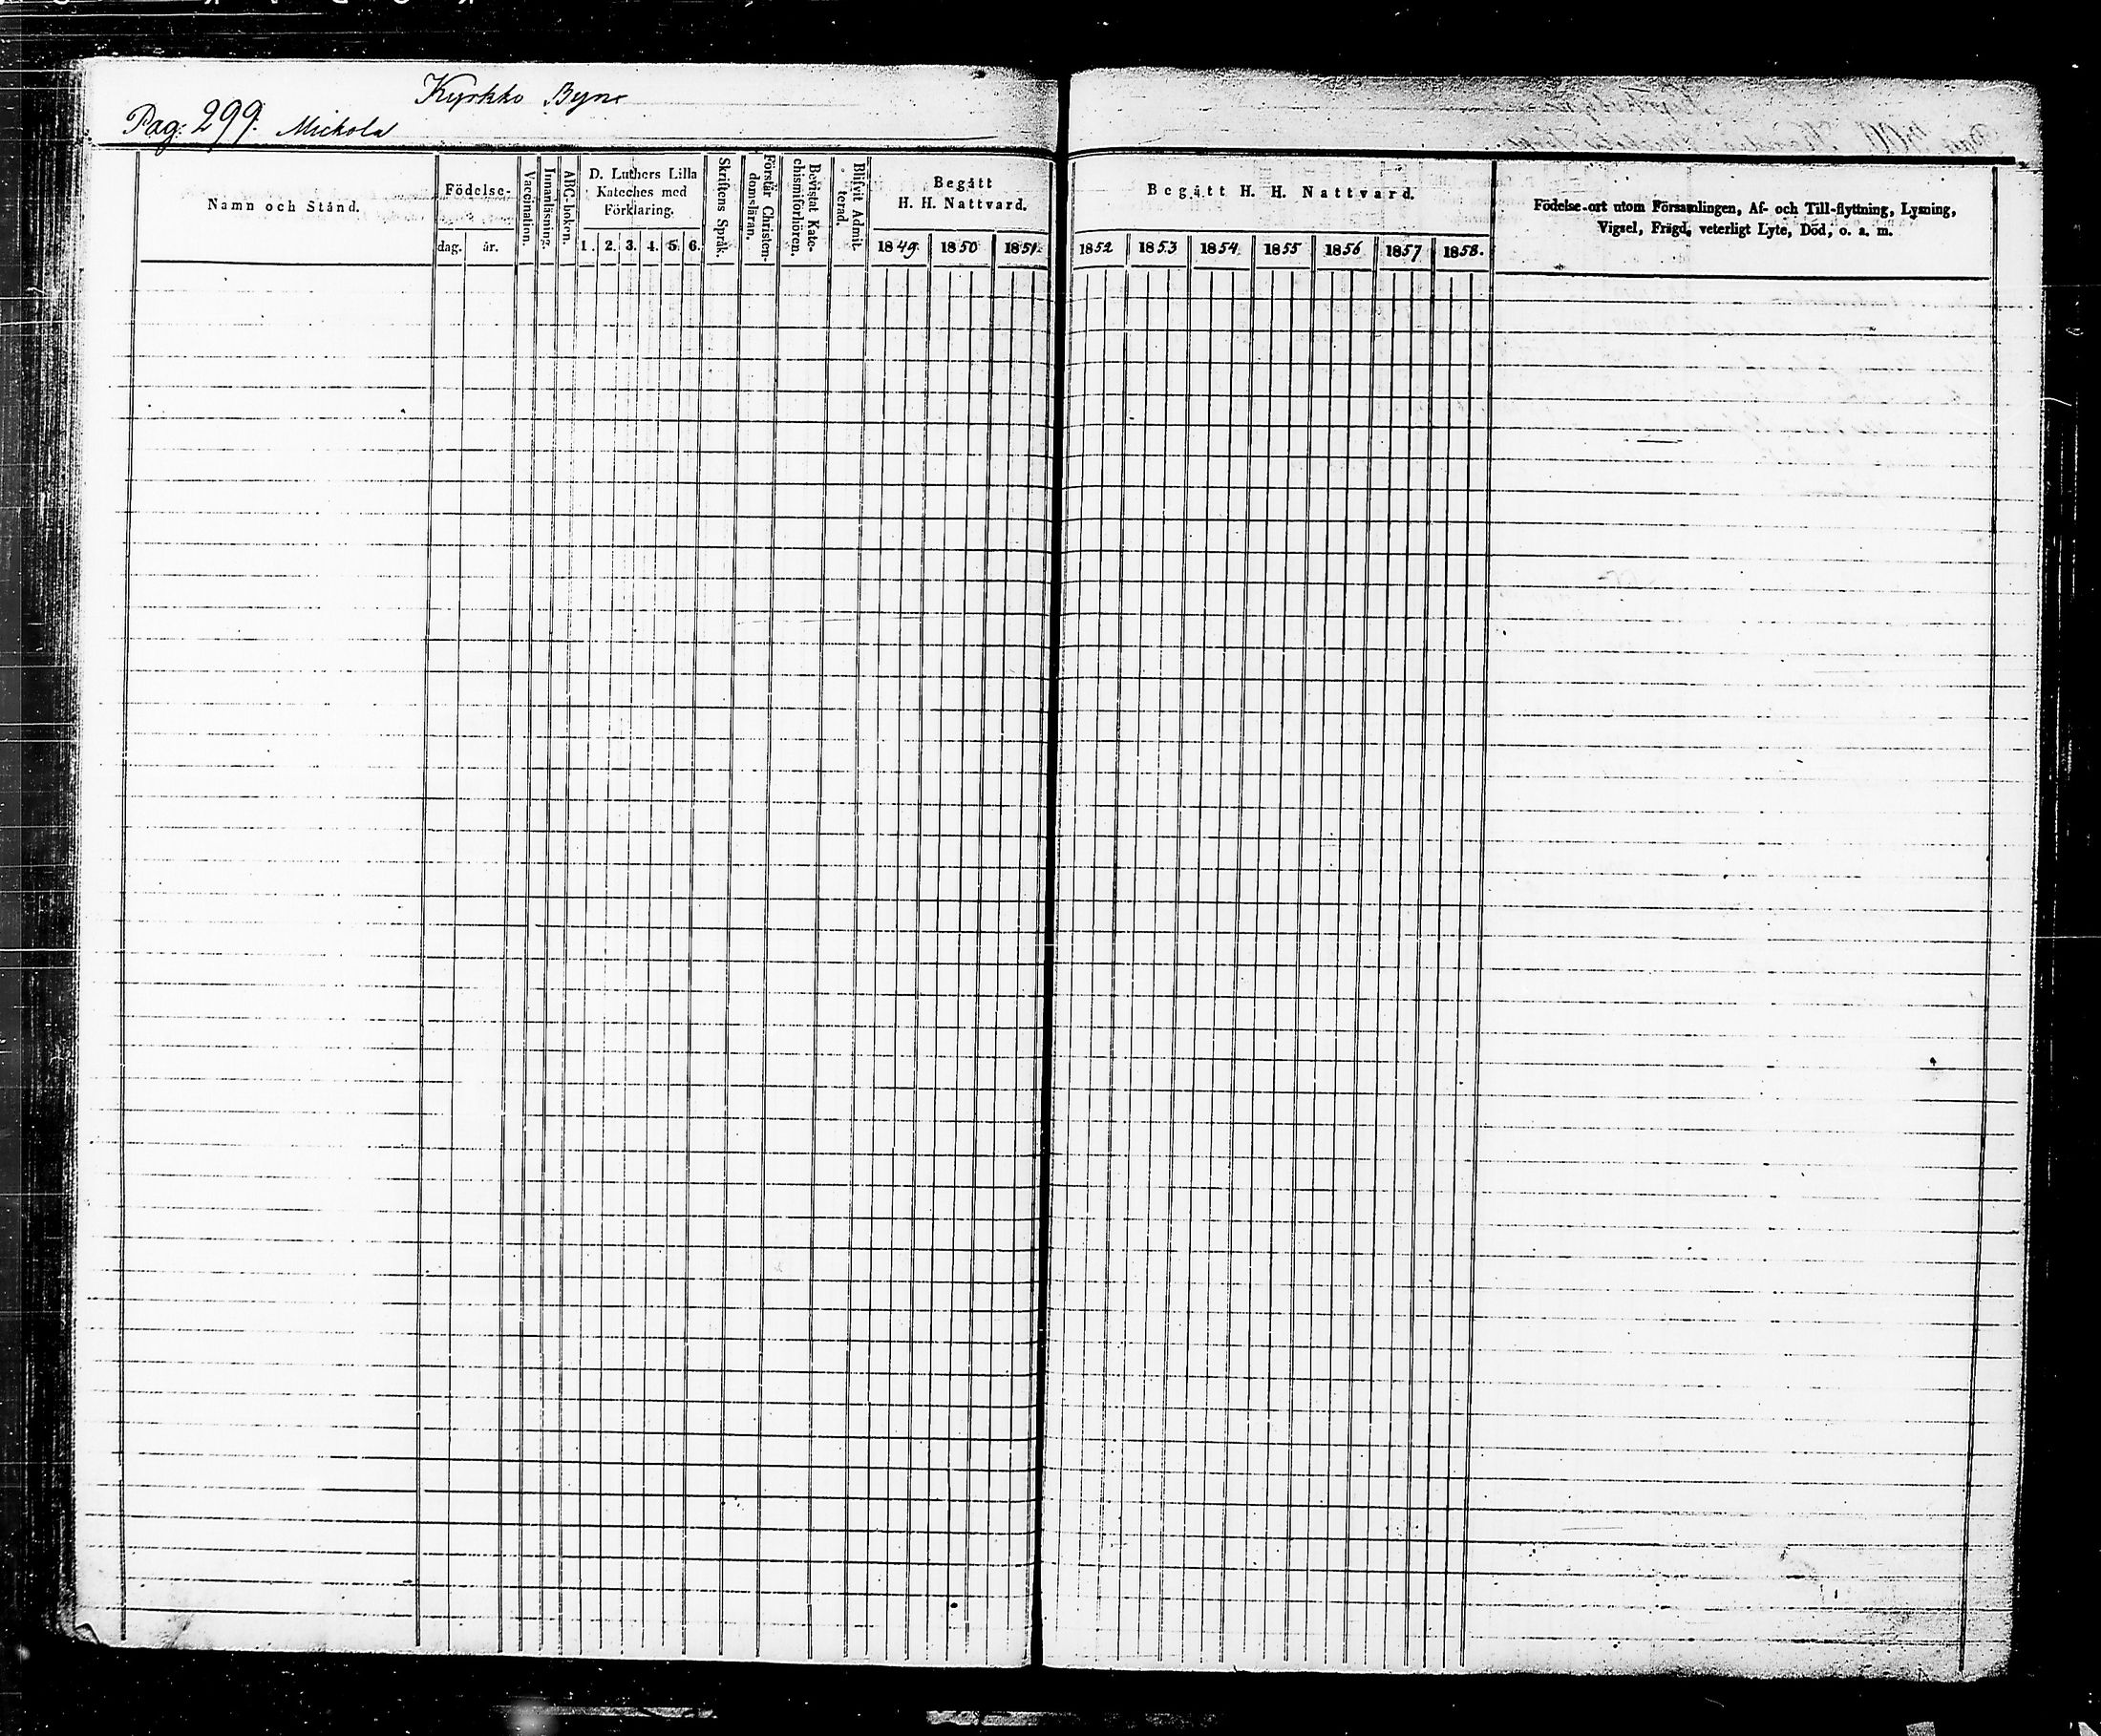 Kyrkko Byne
Pag. 299. Mickola
Namn och Stånd.
Födelse-
dag. år.
Vaccination.
Innanläsning.
ABC-boken.
D. Luthers Lilla
Kateches med
Förklaring.
1. 2. 3. 4. 5. 6.
Skriftens Språk.
Förstår Christen-
domsläran.
Bevistat Kate-
chismiförhören.
Blifvit Admit-
terad.
Begått
H. H. Nattvard.
1849. 1850 1851.
Begått H. H. Nattvard.
1852 1853 1854 1855 1856 1857 1858.
Födelse-ort utom Församlingen, Af- och Till-flyttning, Lysning,
Vigsel, Frägd, veterligt Lyte, Död, o. a. m.